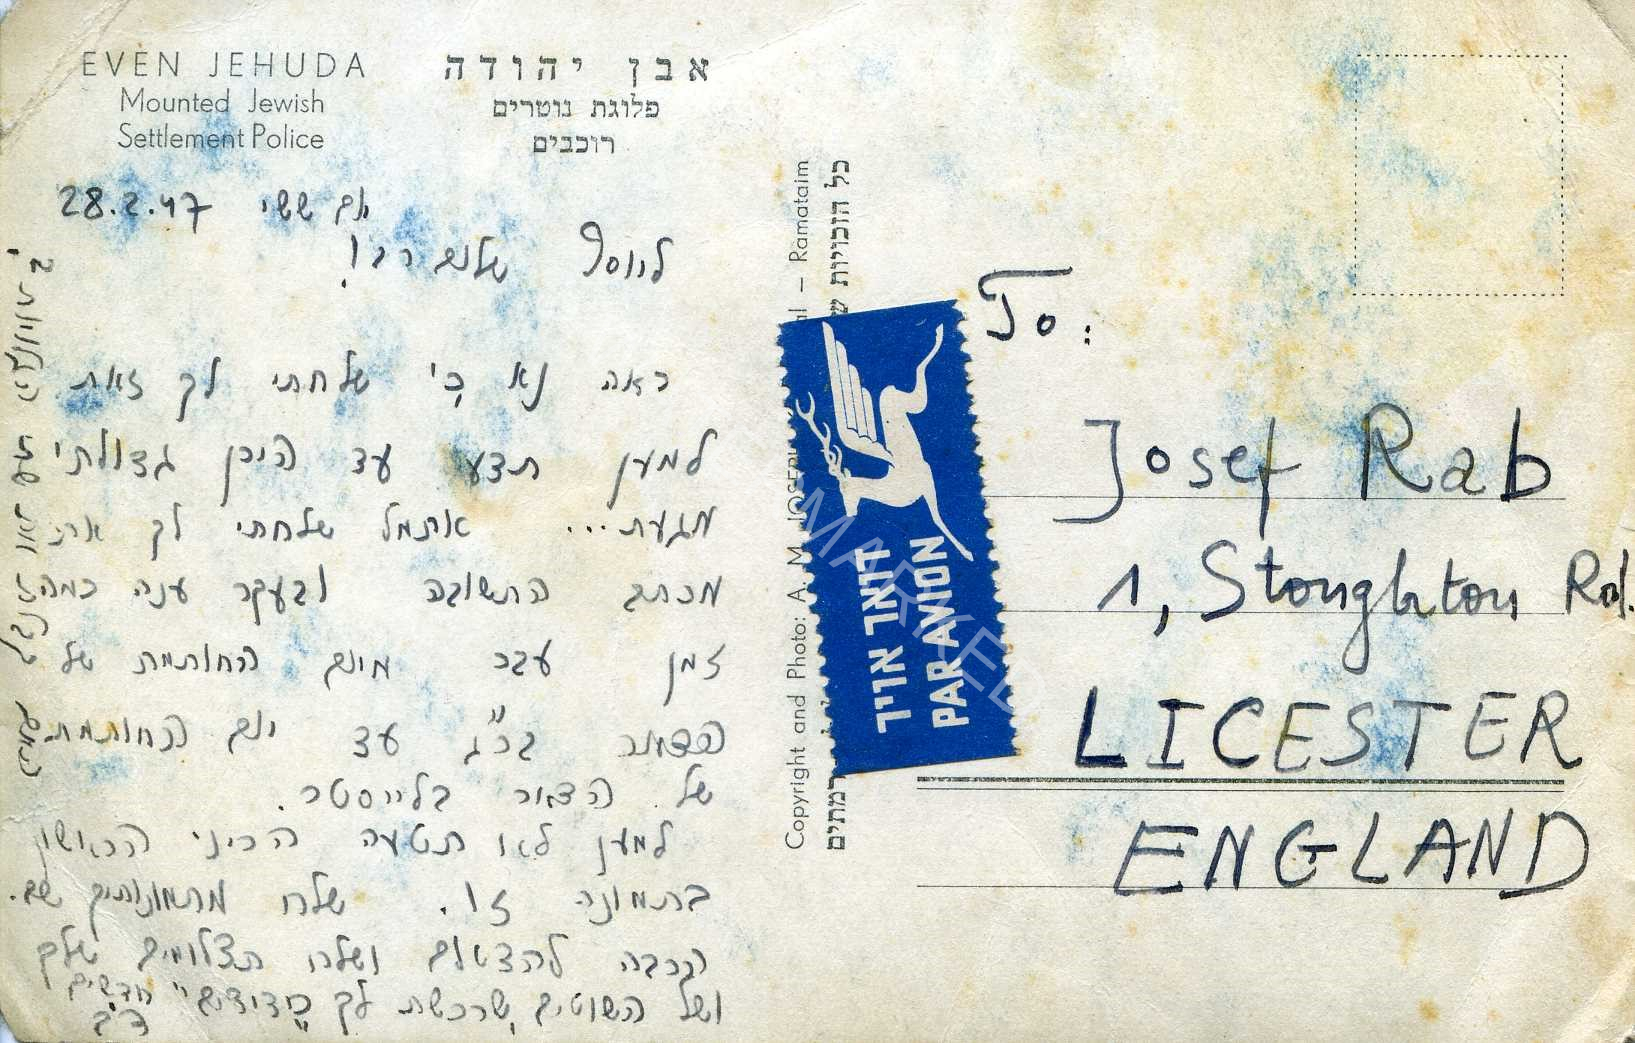 EVEN JEHUDA
Mounted Jewish
Settlement Police
אבן יהודה
פלוגת נוטרים
רוכבים
יום ששי 28.2.47
ליוסף שלום רב!
ראה נא כי שלחתי לך זאת
למען תדע עד היכן גדולתי
מגעת... אתמול שלחתי לך את
מכתב התשובה ובעקר ענה כמה
זמן עבר מיום החותמת של
הדאר בת"א עד יום החותמת
של הדאר בלייסטר.
למען לא תטעה הריני הראשון
בתמונה זו. שלח מתמונותיך שם.
הרבה להצטלם ושלח תצלומים שלך
ושל השוטים שרכשת לך כידידים" חדשים
Copyright and Photo: A. M. – Ramataim
כל הזכויות
רמתים
דואר אויר
PAR AVION
MARKED
To:
Josef Rab
1, Stoughton Rd.
LICESTER
ENGLAND